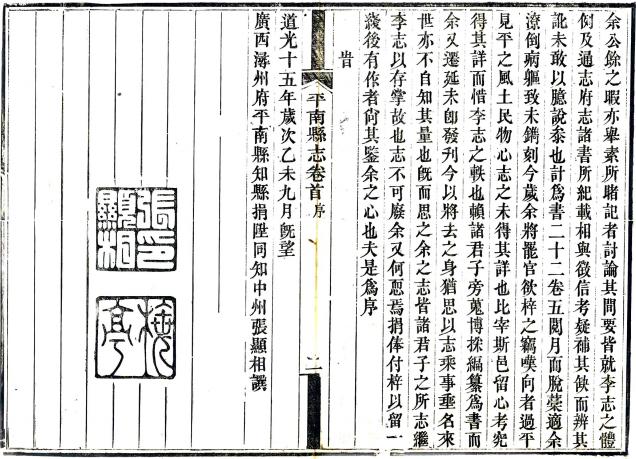 余公餘之暇亦畢素所睹記者討論其間要皆就李志之體
例及通志府志諸書所紀載相與徵信考疑補其佚而辨其
訛未敢以臆說參也計爲書二十二卷五閱月而脫藁適余
潦倒病軀致未鐫刻今歲余將罷官欲梓之竊嘆向者過平
見平之風土民物心志之未得其詳也比宰斯邑留心考究
得其詳而惜李志之軼也賴諸君子旁蒐博採編纂爲書而
余又遷延未卽發刊今以將去之身猶思以志乘事垂名來
世亦不自知其量也旣而思之余之志皆諸君子之所志繼
李志以存掌故也志不可廢余又何慝焉捐俸付梓以留一
綫後有作者尚其鑒余之心也夫是爲序
旹
平南縣志卷首 序 二
道光十五年歲次乙未九月旣望
廣西潯州府平南縣知縣捐陞同知中州張顯相譔
張印顯相
梅亭